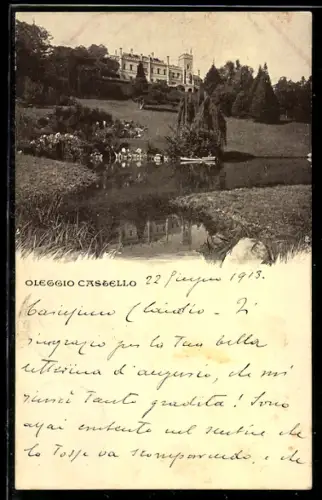 OLEGGIO CASTELLO
22 Giugno 1913.
Carissimo Claudio - Ti
ringrazio per la Tua bella
letterina d'augurio, che mi
riuscì tanto gradita! Sono
assai contento nel sentire che
la Tosse va scomparendo, e che